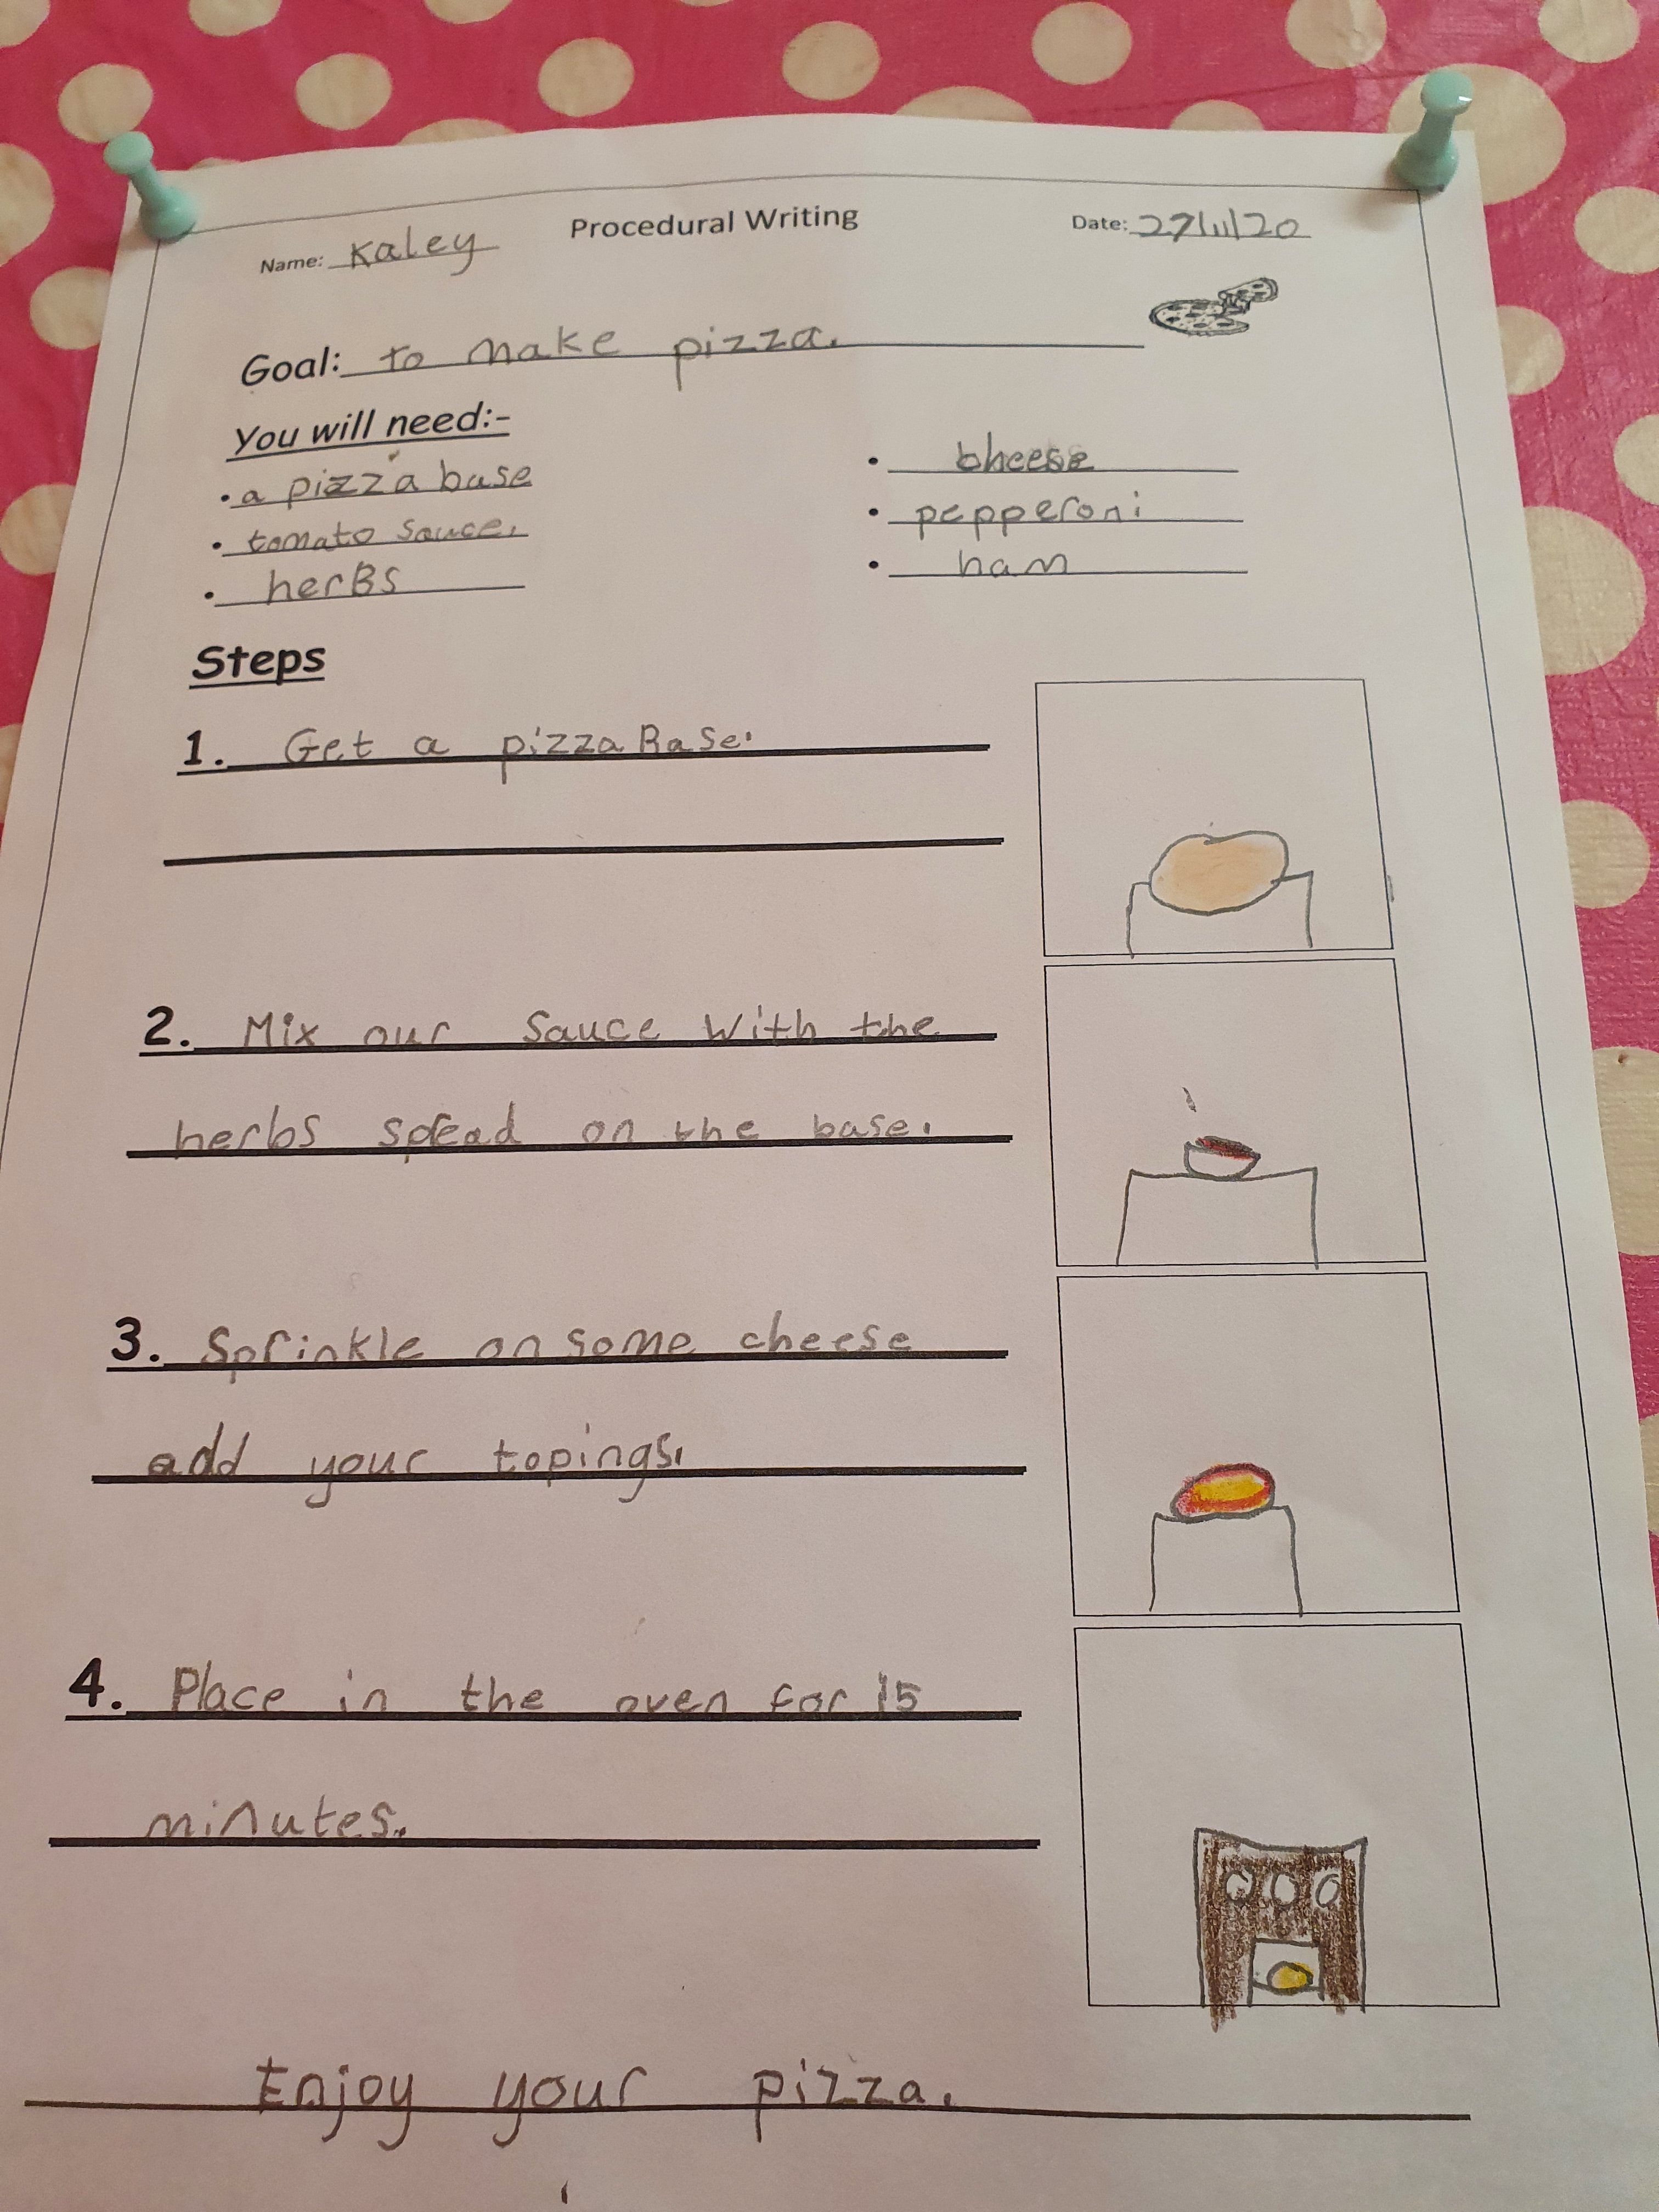 Procedural Writing
Name: Kaley
Date: 27/11/20
Goal: to make pizza.
You will need:-
• a pizza base
• tomato sauce.
• herBs
• cheese
• pepperoni
• ham
Steps
1. Get a pizza Base.
2. Mix our sauce with the
herbs spread on the base.
3. Sprinkle on some cheese
add your topings.
4. Place in the oven for 15
minutes.
Enjoy your pizza.